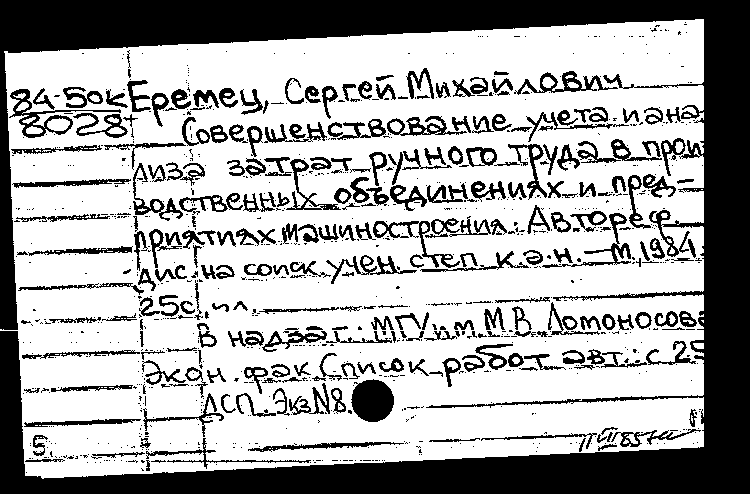 84-50к Еремец, Сергей Михайлович.
8028 Совершенствование учета и ана-
лиза затрат ручного труда в произ
водственных объединениях и пред-
приятиях машиностроения: Автореф.
дис. на соиск. учен. степ. к.э.н. — М, 1984.
25с., ил.
В надзаг.: МГУ им. М В Ломоносова
Экон. фак. Список работ авт.: с 25
ДСП. Экз N8.
5.